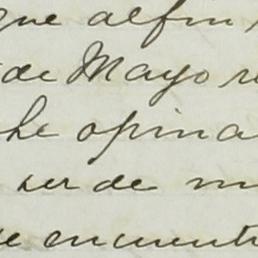 que al fin
de Mayo re
he opina
ser de m
se encuentr